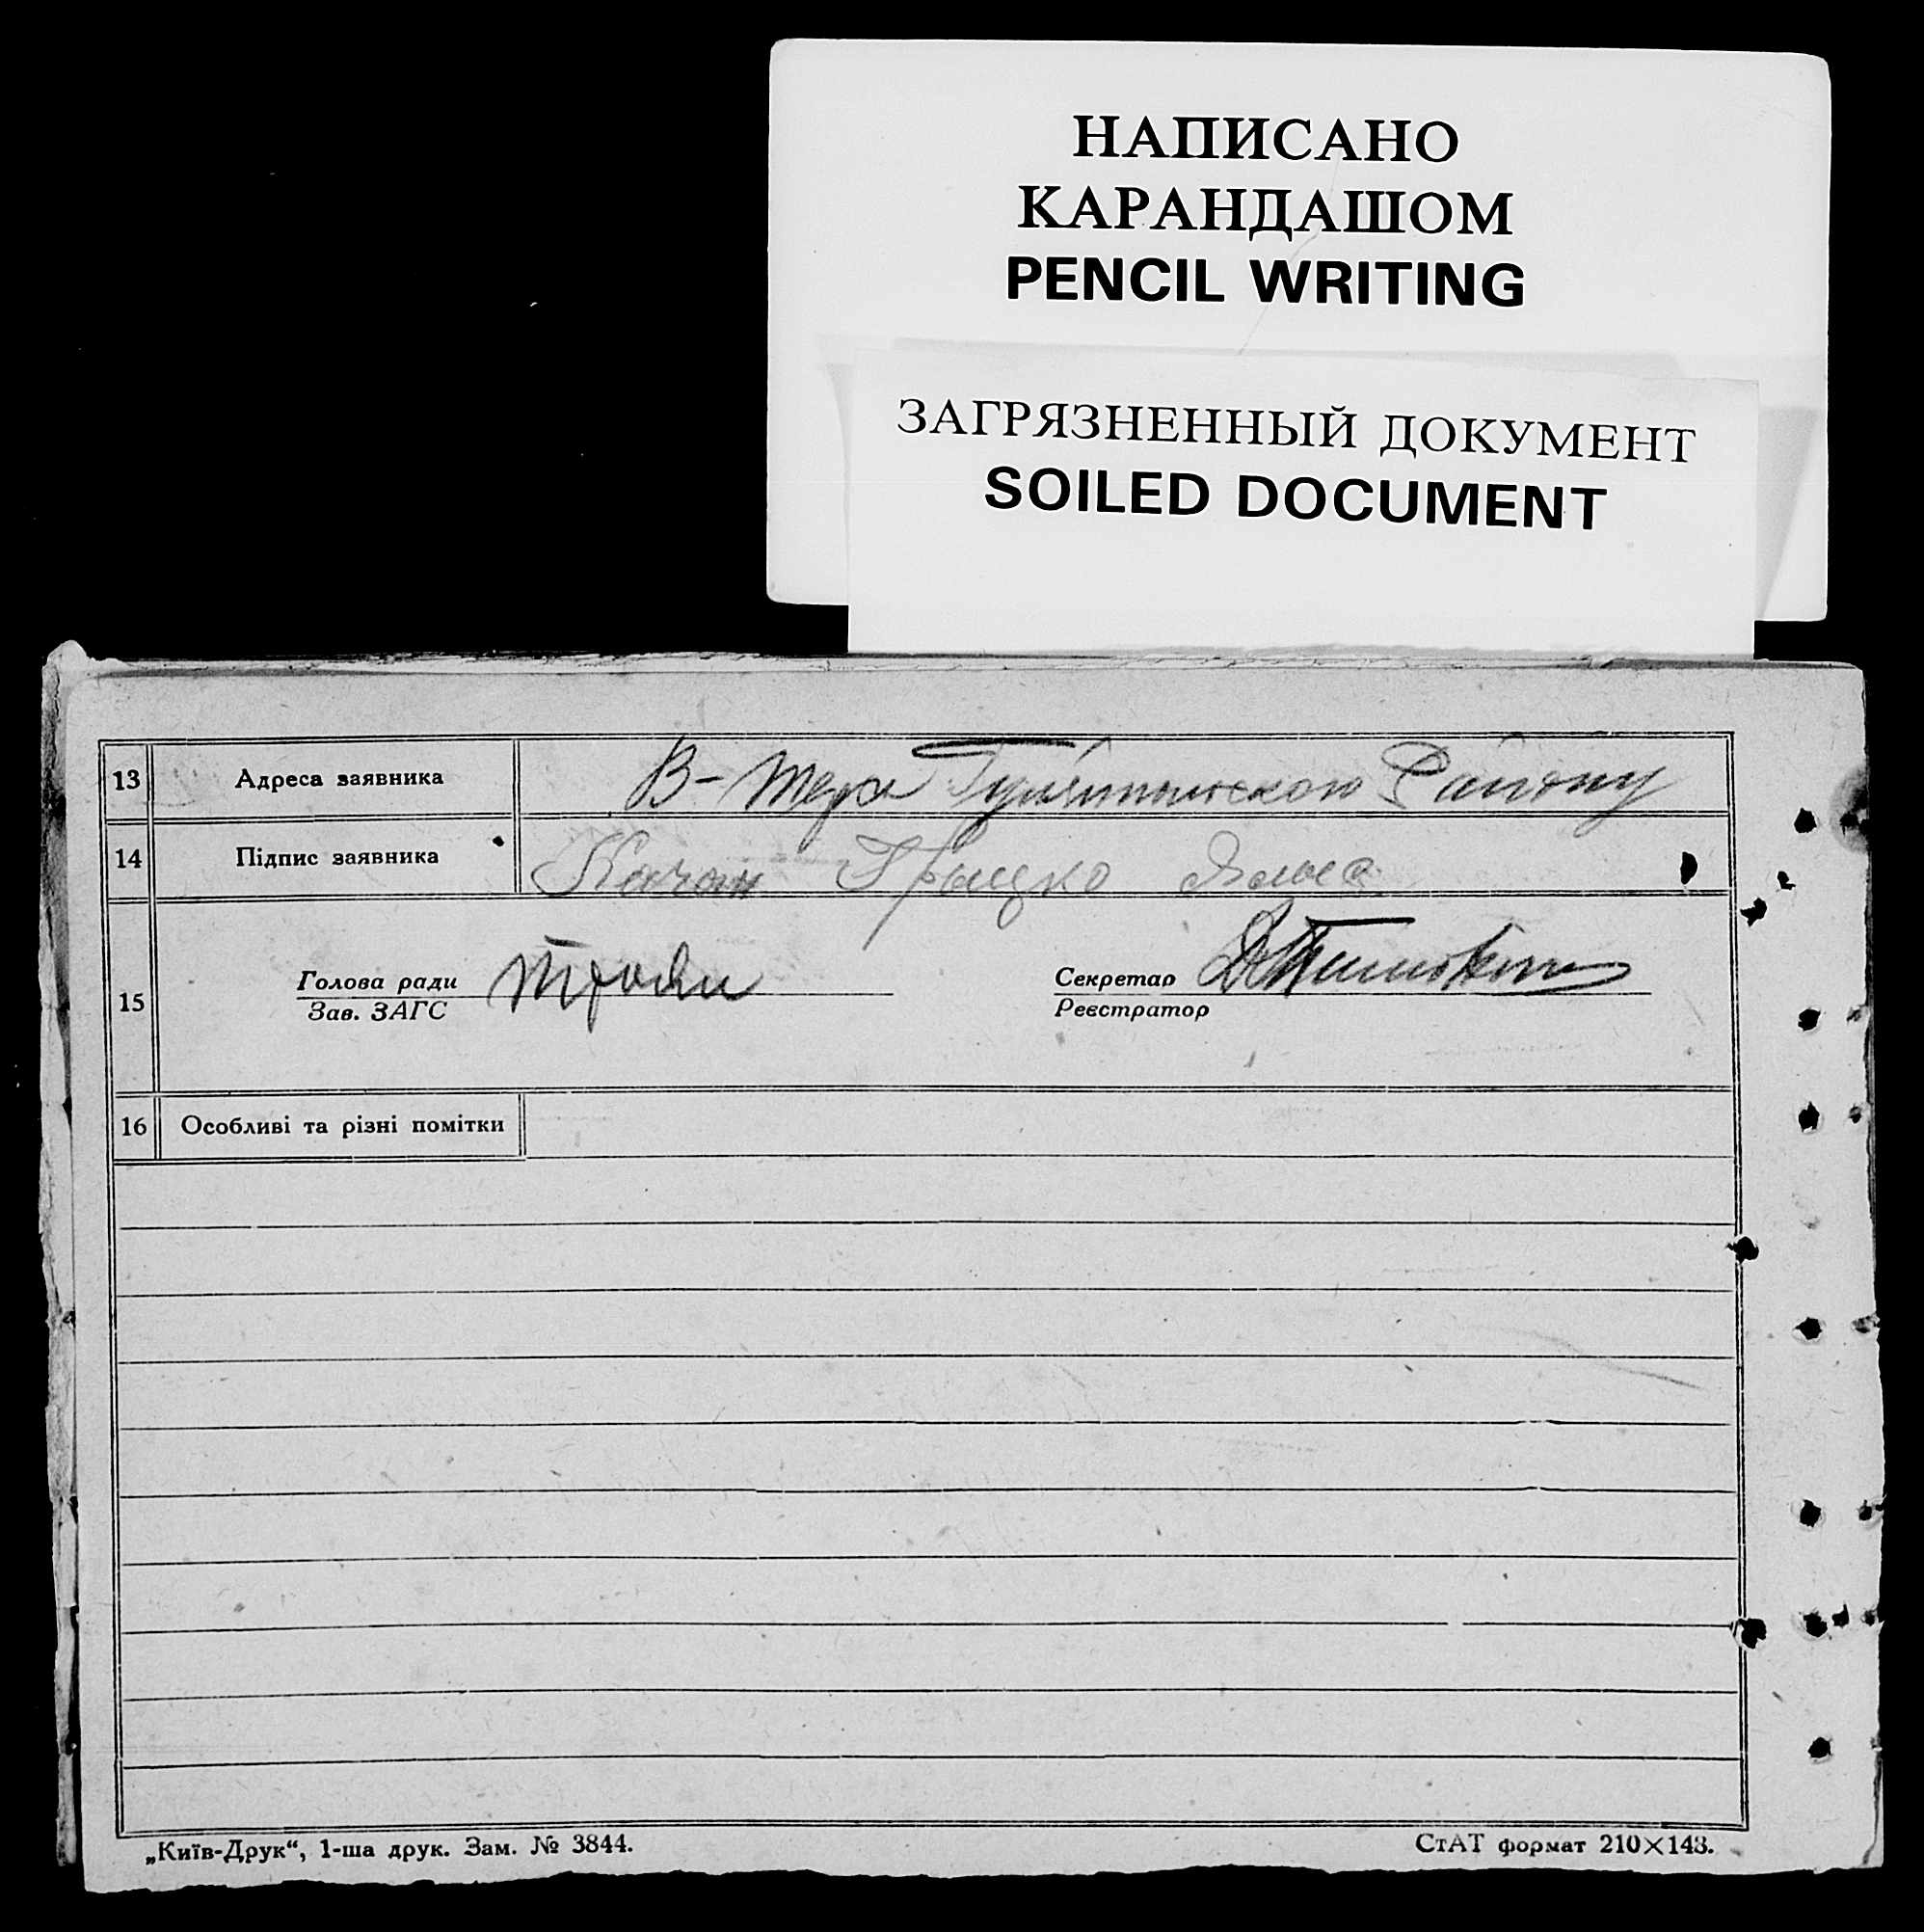 НАПИСАНО
КАРАНДАШОМ
PENCIL WRITING
ЗАГРЯЗНЕННЫЙ ДОКУМЕНТ
SOILED DOCUMENT
13 Адреса заявника В-Тера Гуляйпільского Району
14 Підпис заявника Качан Грыцко
15 Голова ради Троян Секретар
Зав. ЗАГС Реєстратор
16 Особливі та різні помітки
„Київ-Друк“, 1-ша друк. Зам. № 3844. СтАТ формат 210×143.